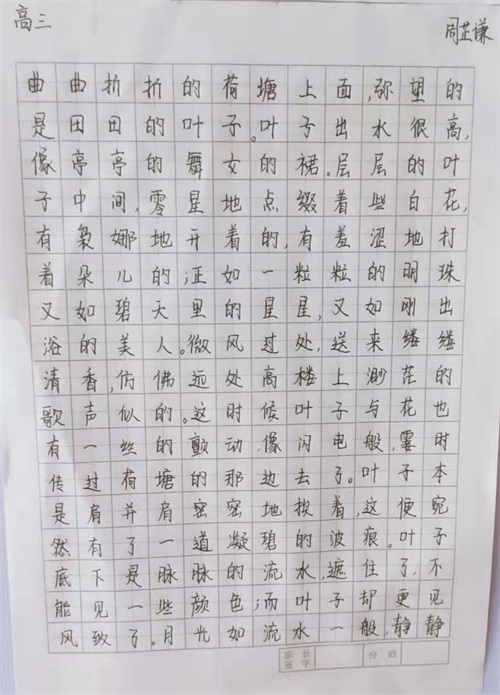 高三
周芷谦
曲曲折折的荷塘上面,弥望的
是田田的叶子。叶子出水很高,
像亭亭的舞女的裙。层层的叶
子中间,零星地点缀着些白花,
有袅娜地开着的,有羞涩地打
着朵儿的;正如一粒粒的明珠
又如碧天里的星星,又如刚出
浴的美人。微风过处,送来缕缕
清香,仿佛远处高楼上渺茫的
歌声似的。这时候叶子与花也
有一丝的颤动,像闪电般,霎时
传过荷塘的那边去了。叶子本
是肩并肩密密地挨着,这便宛
然有了一道凝碧的波痕。叶子
底下是脉脉的流水,遮住了,不
能见一些颜色;而叶子却更见
风致了。月光如流水一般,静静
家长签字
分数